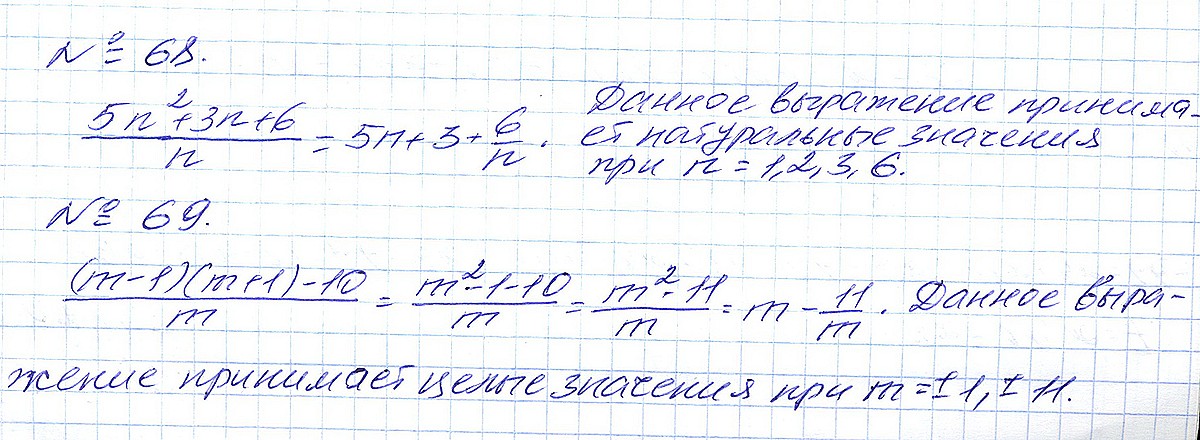 № 68.
(5n²+3n+6)/n = 5n+3+6/n. Данное выражение принима-
ет натуральные значения
при n = 1, 2, 3, 6.
№ 69.
((m-1)(m+1)-10)/m = (m²-1-10)/m = (m²-11)/m = m - 11/m. Данное выра-
жение принимает целые значения при m = ±1, ±11.